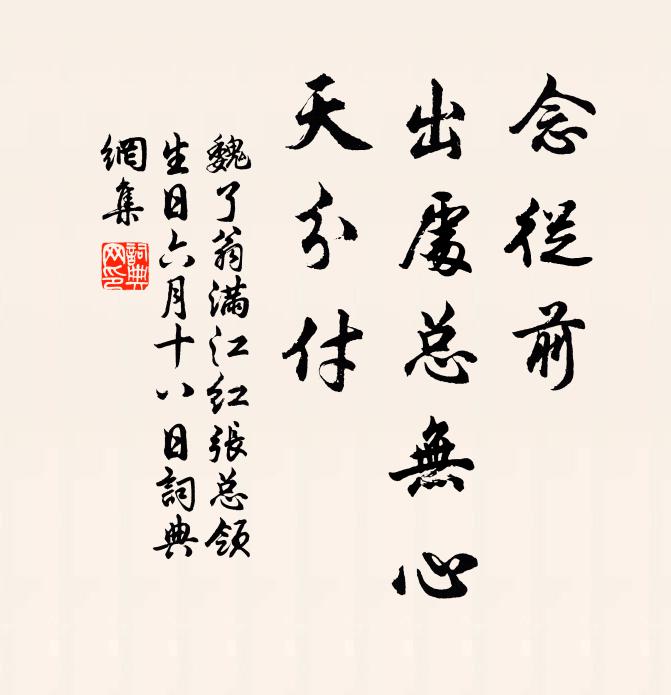 念從前
出處总無心
天分付
魏了翁滿江红張总領
生日六月十八日詞典
網集
詞典
网印